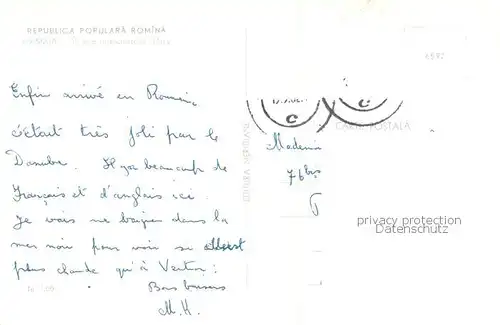 REPUBLICA POPULARĂ ROMÎNĂ
6592
Enfin arrivé en Roman
CARTE POSTALA
c'était très joli par le
Danube. Il y a beaucoup de
Français et d'anglais ici.
Je vais me baigner dans la
mer noire pour voir si
plus chaude qu'à Vertou!
Bons baisers
M.H.
C
C
Madem
76 bis
privacy protection
Datenschutz